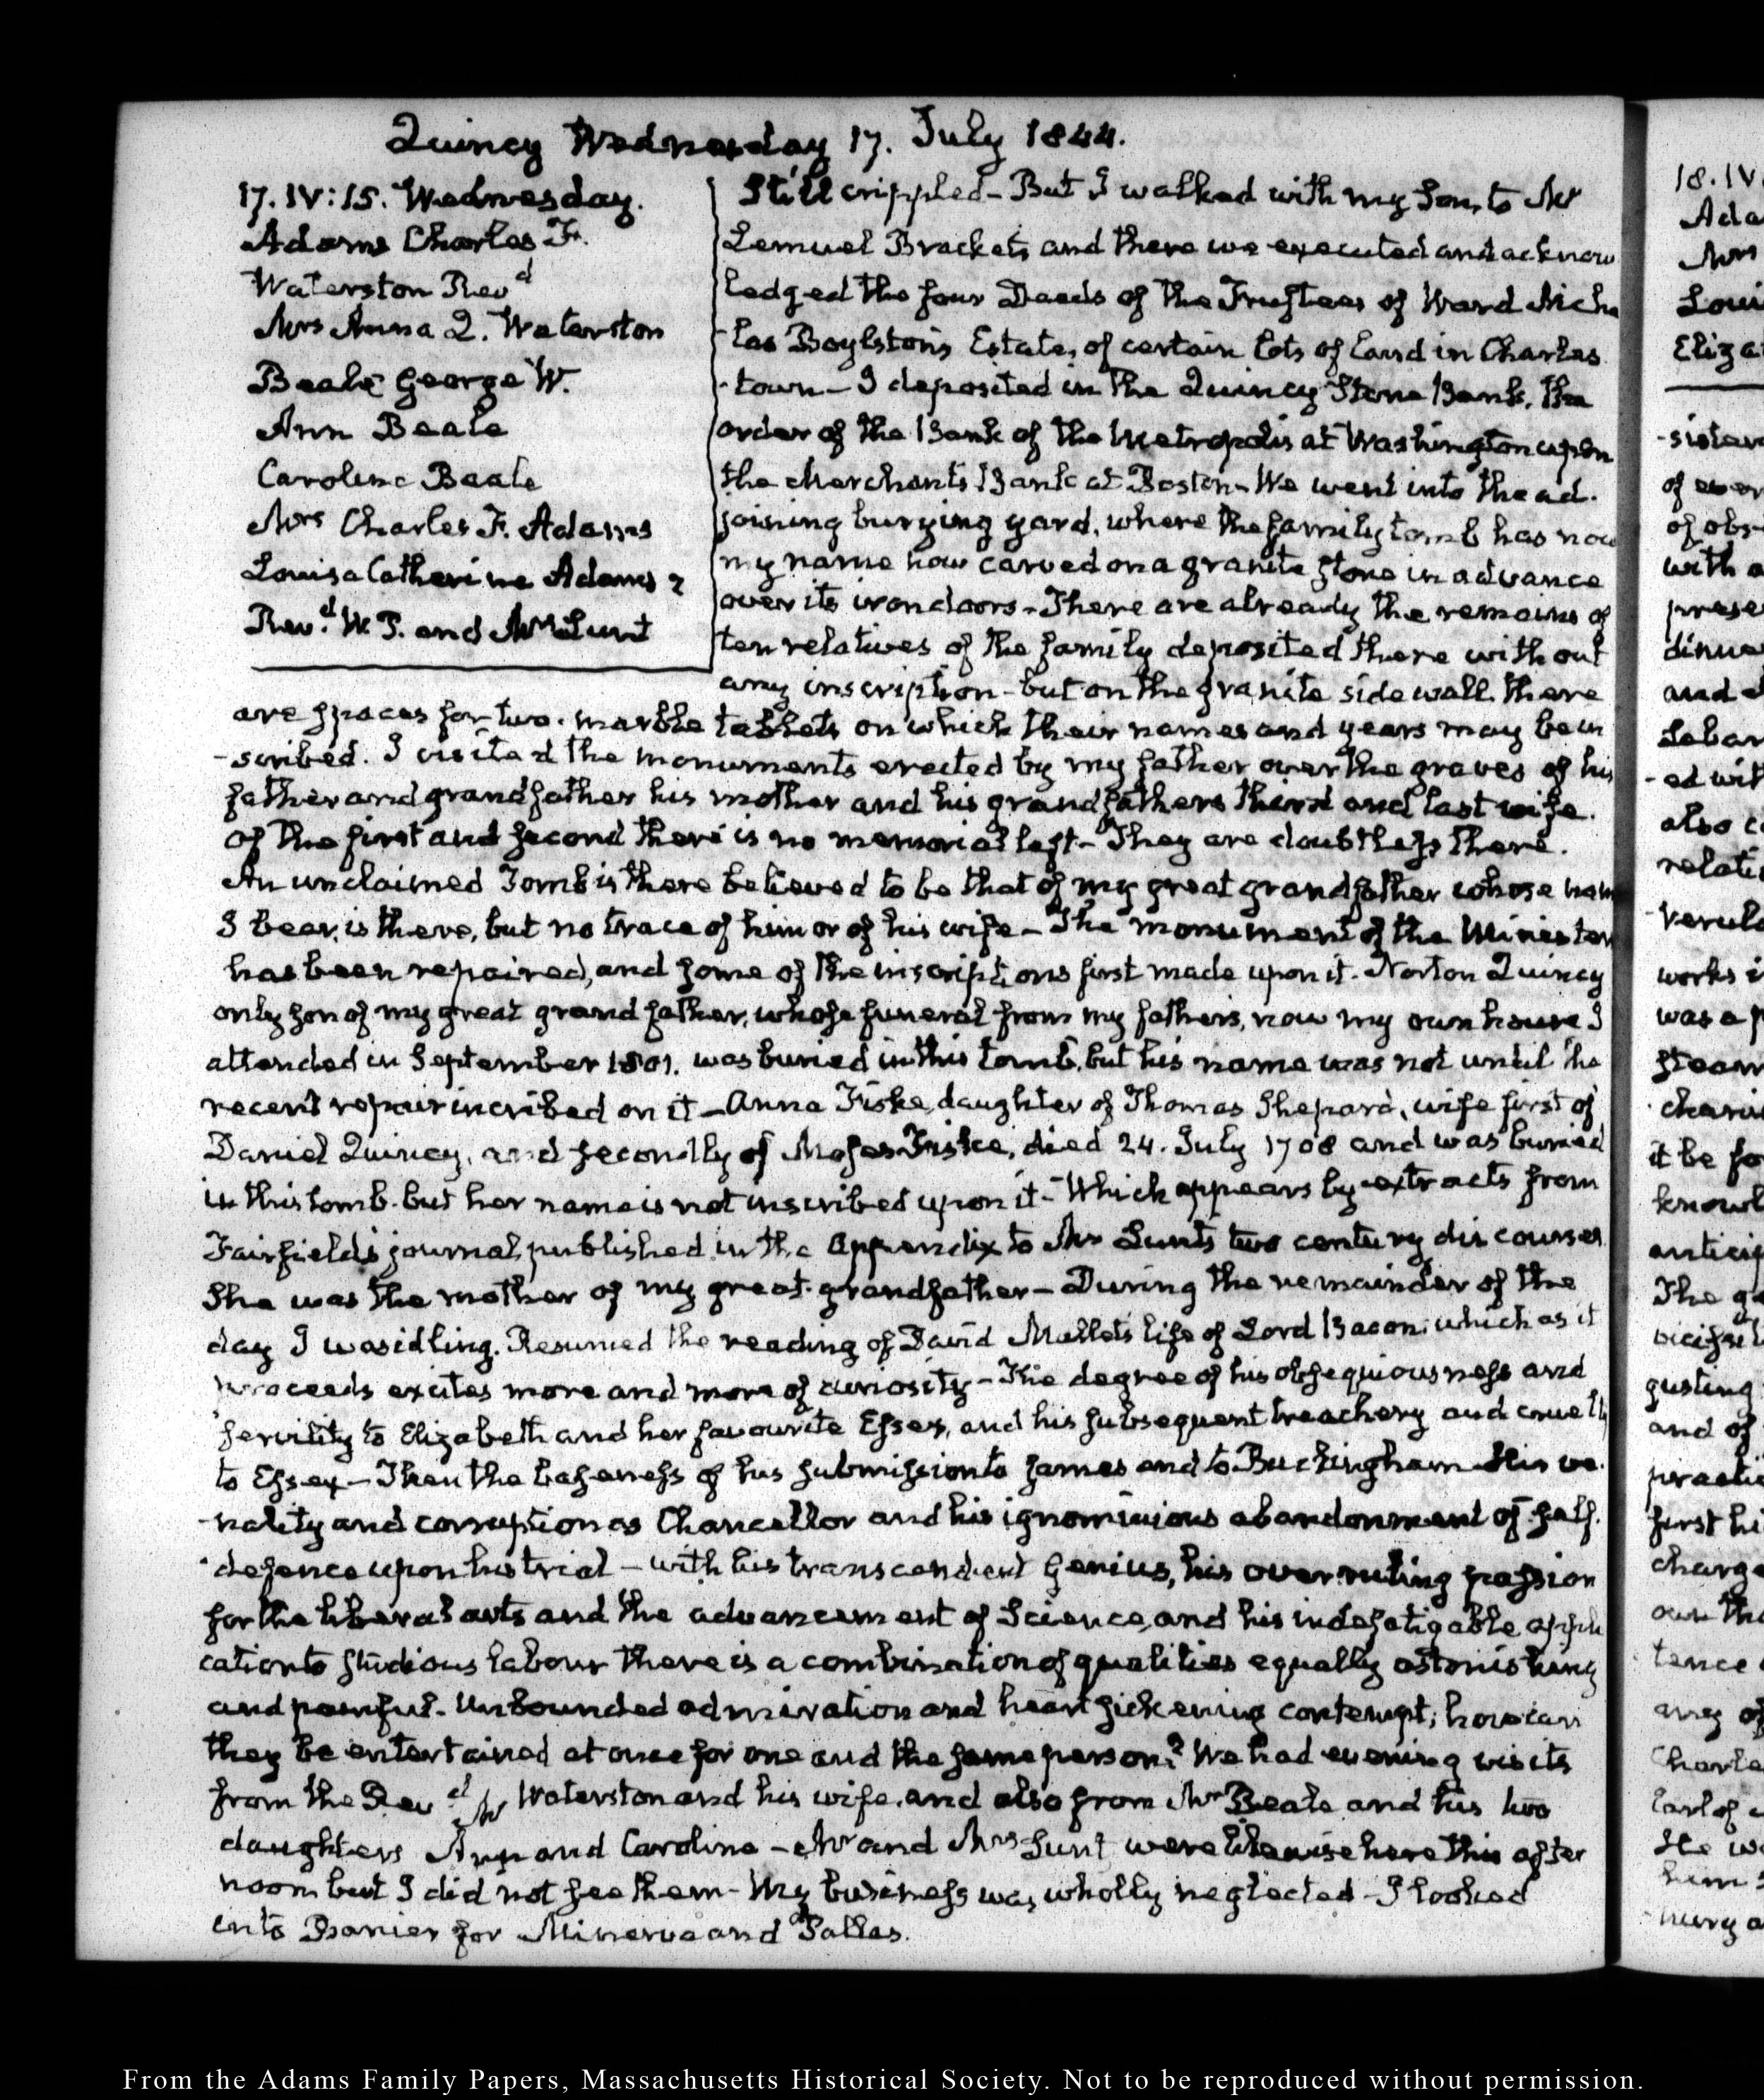 Quincy Wednesday 17. July 1844.
17. IV:15. Wednesday.
Adams Charles F.
Waterston Revd
Mrs Anna Q. Waterston
Beale George W.
Ann Beale
Caroline Beale
Mrs Charles F. Adams
Louisa Catherine Adams 2
Revd. W. P. and Mrs Lunt
Still crippled - But I walked with my Son, to Mr
Lemuel Brackets and there we executed and acknow
ledged the four Deeds of the Trustees of Ward Nicho
-las Boylston's Estate, of certain lots of land in Charles
-town - I deposited in the Quincy Stone Bank, the
order of the Bank of the Metropolis at Washington upon
the Merchants Bank at Boston - We went into the ad.
joining burying yard, where the family tomb has now
my name now carved on a granite stone in advance
over its iron doors - There are already the remains of
ten relatives of the family deposited there without
any inscription - but on the granite side wall there
are spaces for two marble tablets on which their names and years may be in
-scribed. I visited the monuments erected by my father over the graves of his
father and grandfather his mother and his grandfathers third and last wife.
Of the first and second there is no memorial left - They are doubtless there.
An unclaimed Tomb is there believed to be that of my great grandfather whose nam
I bear, is there, but no trace of him or of his wife - The monument of the Minister
has been repaired, and some of the inscriptions first made upon it. Norton Quincy
only son of my great grandfather, whose funeral from my fathers, now my own house I
attended in September 1801. was buried in this tomb, but his name was not until the
recent repair incribed on it - Anna Fiske, daughter of Thomas Shepard, wife first of
Daniel Quincy, and secondly of Moses Fiske, died 24. July 1708 and was buried
in this tomb. but her name is not inscribed upon it - Which appears by extracts from
Fairfield's journal, published in the Appendix to Mr Lunts two century discourses
She was the mother of my great-grandfather - During the remainder of the
day I was idling. Resumed the reading of David Mallets life of Lord Bacon: which as it
proceeds excites more and more of curiosity - The degree of his obsequiousness and
servility to Elizabeth and her favourite Essex, and his subsequent treachery and cruelty
to Essex - Then the baseness of his submission to James and to Buckingham His ve.
-nality and corruption as Chancellor and his ignominious abandonment of self.
-defence upon his trial - with his transcendent genius, his overruling passion
for the liberal arts and the advancement of Science, and his indefatigable appli
cation to studious labour there is a combination of qualities equally astonishing
and painful. Unbounded admiration and heart sickening contempt; how can
they be entertained at once for one and the same person? We had evening visits
from the Revd. Mr Waterston and his wife, and also from Mr Beale and his two
daughters Ann and Caroline - Mr and Mrs Lunt were likewise here this after
noon but I did not see them - My business was wholly neglected - I looked
into Banier for Minerva and Pallas.
18. IV
Ada
Mrs
Loui
Eliza
-sister
of
of obs
with a
prese
dinne
and
Lebar
-ed wit
also c
relati
Verula
works i
was a
steam
chari
it be fo
knowl
anticip
The
gusting
and of
practi
first hi
charge
own the
tence
any of
Charle
Earl of
He w
him
-bury a
From the Adams Family Papers, Massachusetts Historical Society. Not to be reproduced without permission.